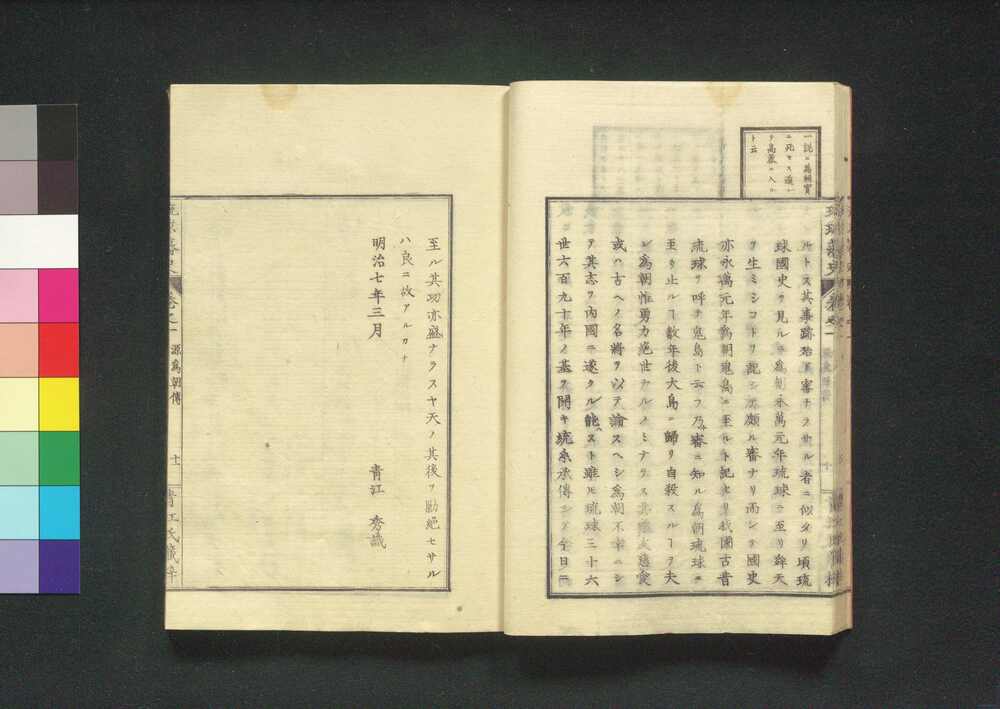 一説ニ為朝實
ニ死セス遁レ
テ高麗ニ入ル
ト云
ルトス其事跡殆ト審ナラサル者ニ似タリ頃琉
球國史ヲ見ルニ為朝永萬元年琉球ニ至リ舜天
ヲ生ミシコトヲ記シテ頗ル審ナリ而シテ國史
亦永萬元年為朝鬼島ニ至ルト記セリ我國古昔
琉球ヲ呼テ鬼島ト云フ乃審ニ知ル為朝琉球ニ
至リ止ルヿ数年後大島ニ歸リ自殺スルヿヲ夫
レ為朝惟勇力絶世ナルノミナラス其
或ハ古ヘノ名将ヲ以テ論スヘシ為朝不幸ニシ
テ其志ヲ内國ニ遂クル能ハスト雖ヒ琉球三十六
世六百九十年ノ基ヲ開キ統系承傳シテ今日ニ
琉球藩史
巻之一
源為朝傳
十一
青江氏藏梓
至ル其功亦盛ナラスヤ天ノ其後ヲ勦絶セサル
ハ良ニ故アルカナ
明治七年三月
青江 秀識